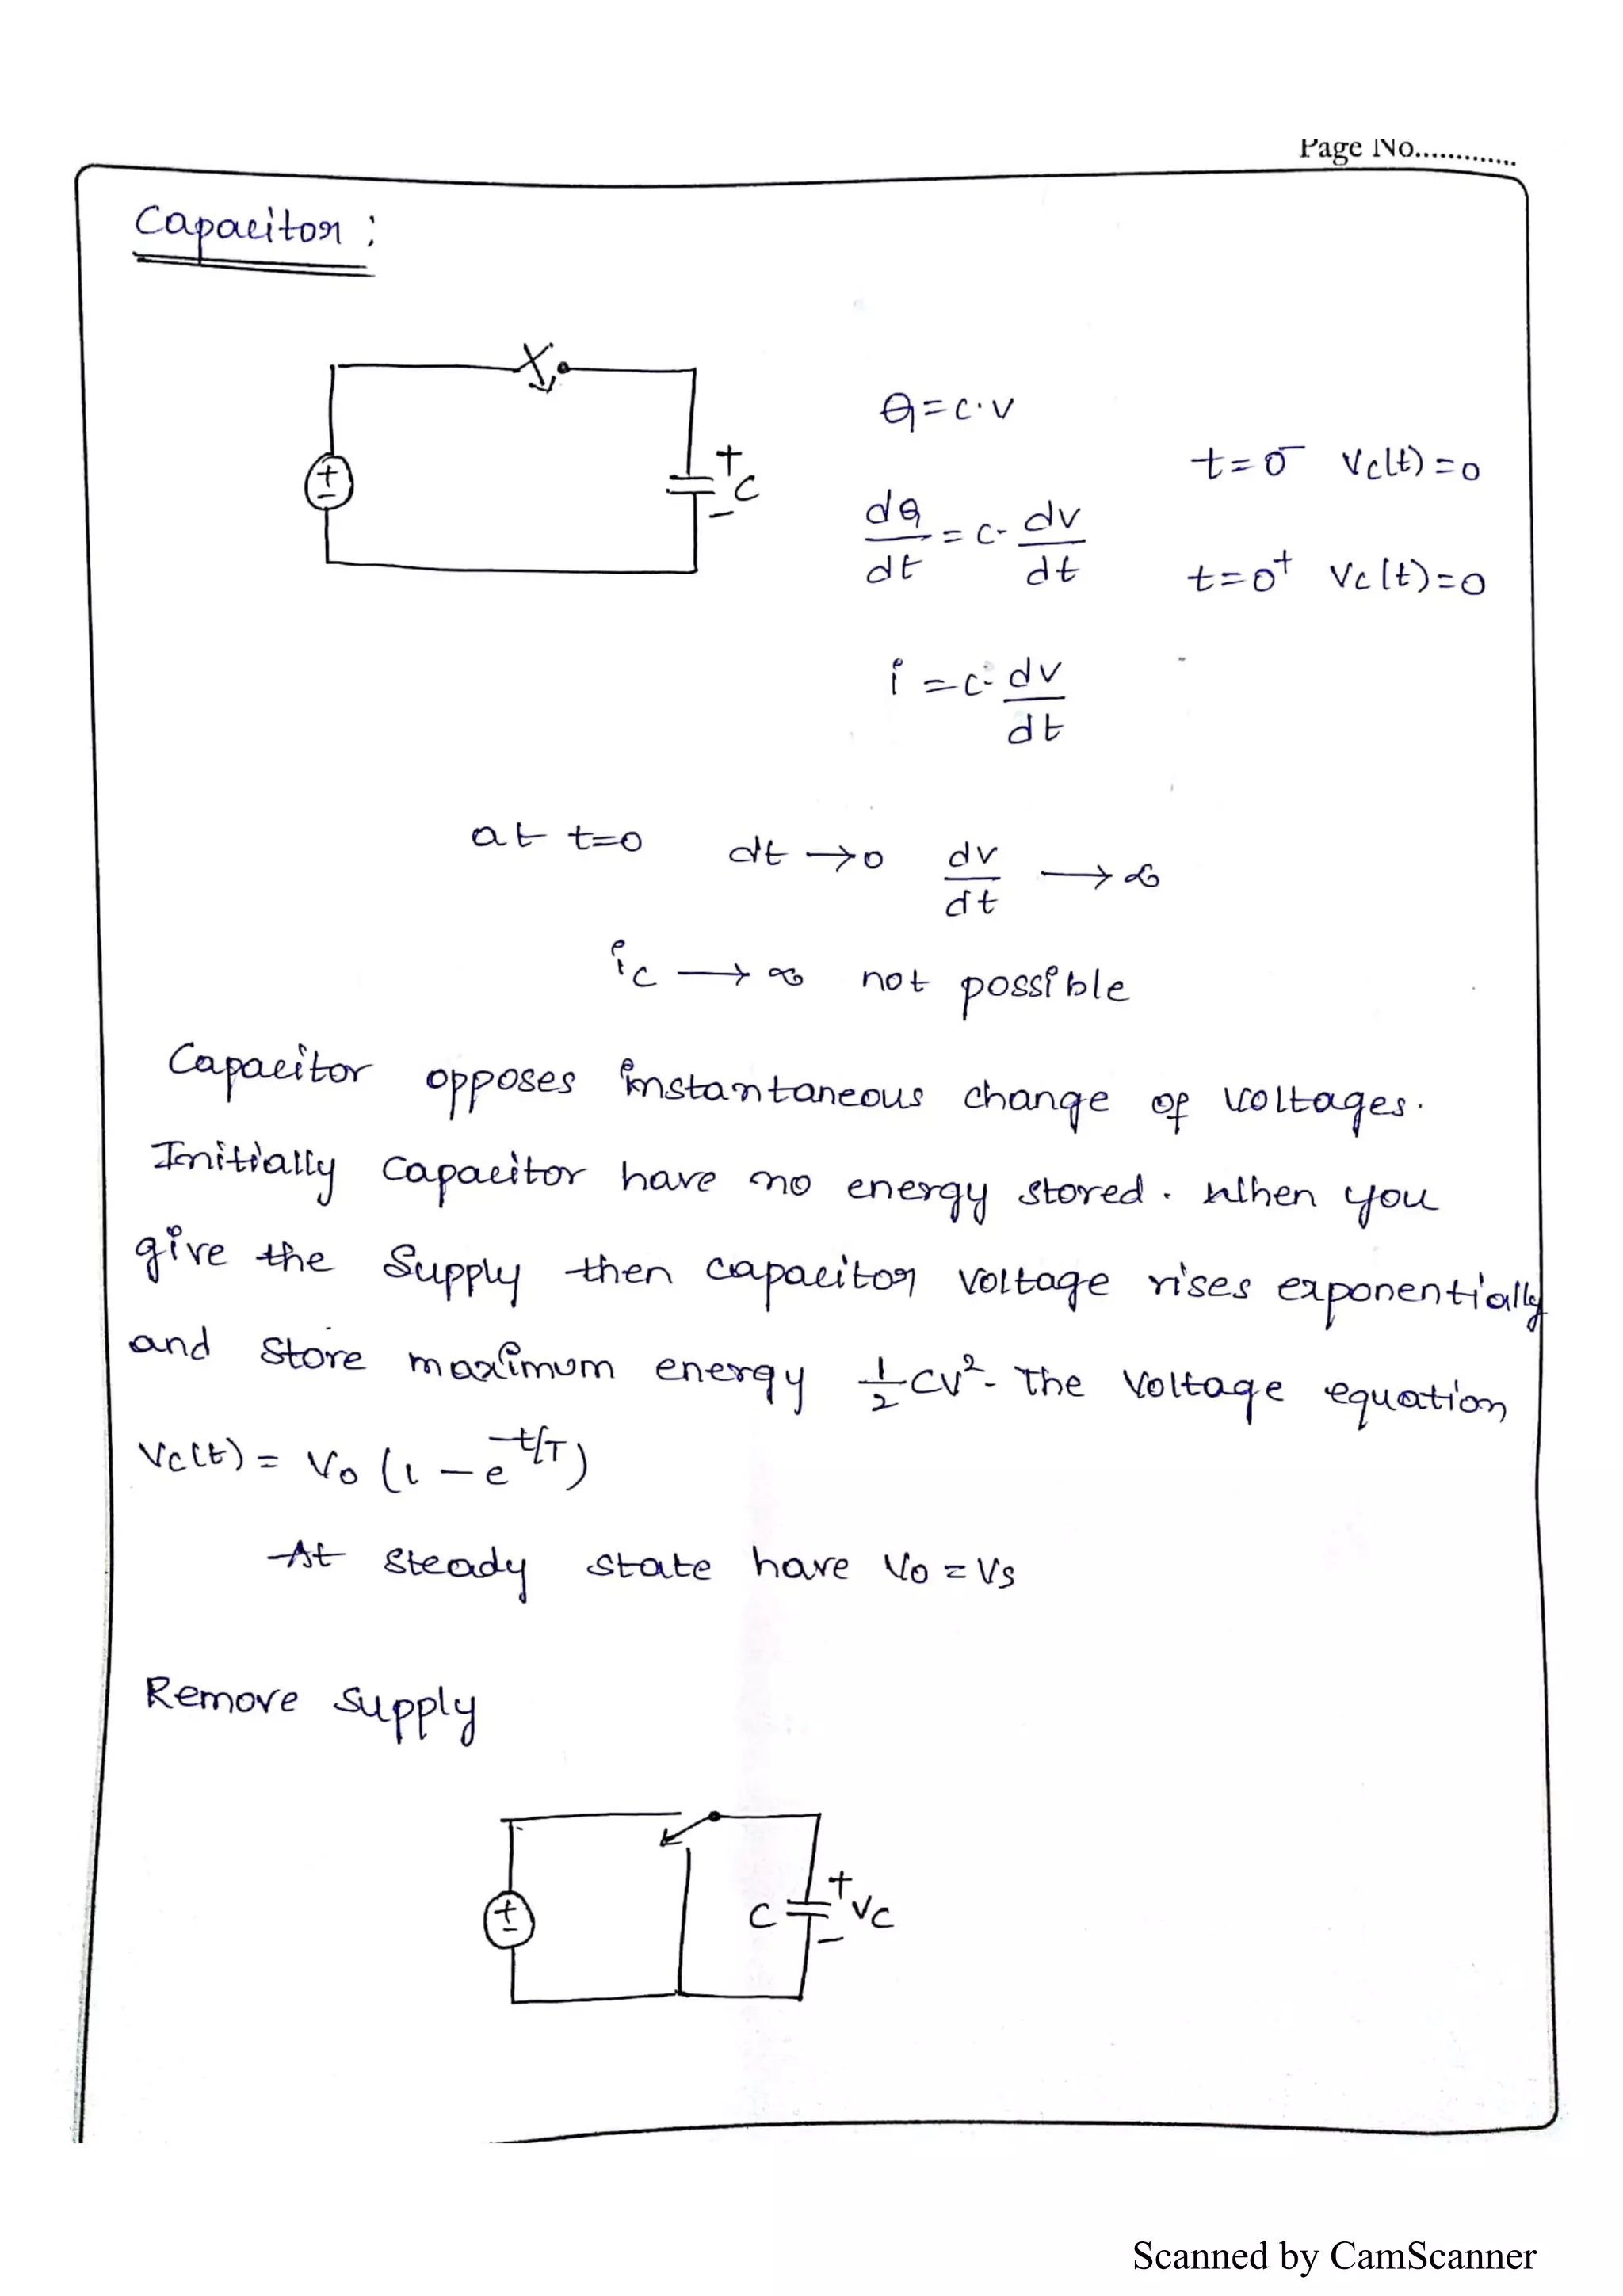 Page No.............
Capacitor :
+
−
+
C
−
Q = C·V
t=0⁻ Vc(t) = 0
dQ/dt = C· dv/dt
t=0⁺ Vc(t) = 0
i = C· dv/dt
at t=0 dt → 0 dv/dt → ∞
ic → ∞ not possible
Capacitor opposes instantaneous change of voltages.
Initially capacitor have no energy stored. When you
give the Supply then capacitor voltage rises exponentially
and store maximum energy 1/2 CV². The Voltage equation
Vc(t) = Vo (1 − e^−t/T)
At steady state have Vo = Vs
Remove supply
+
−
C
+
Vc
−
Scanned by CamScanner